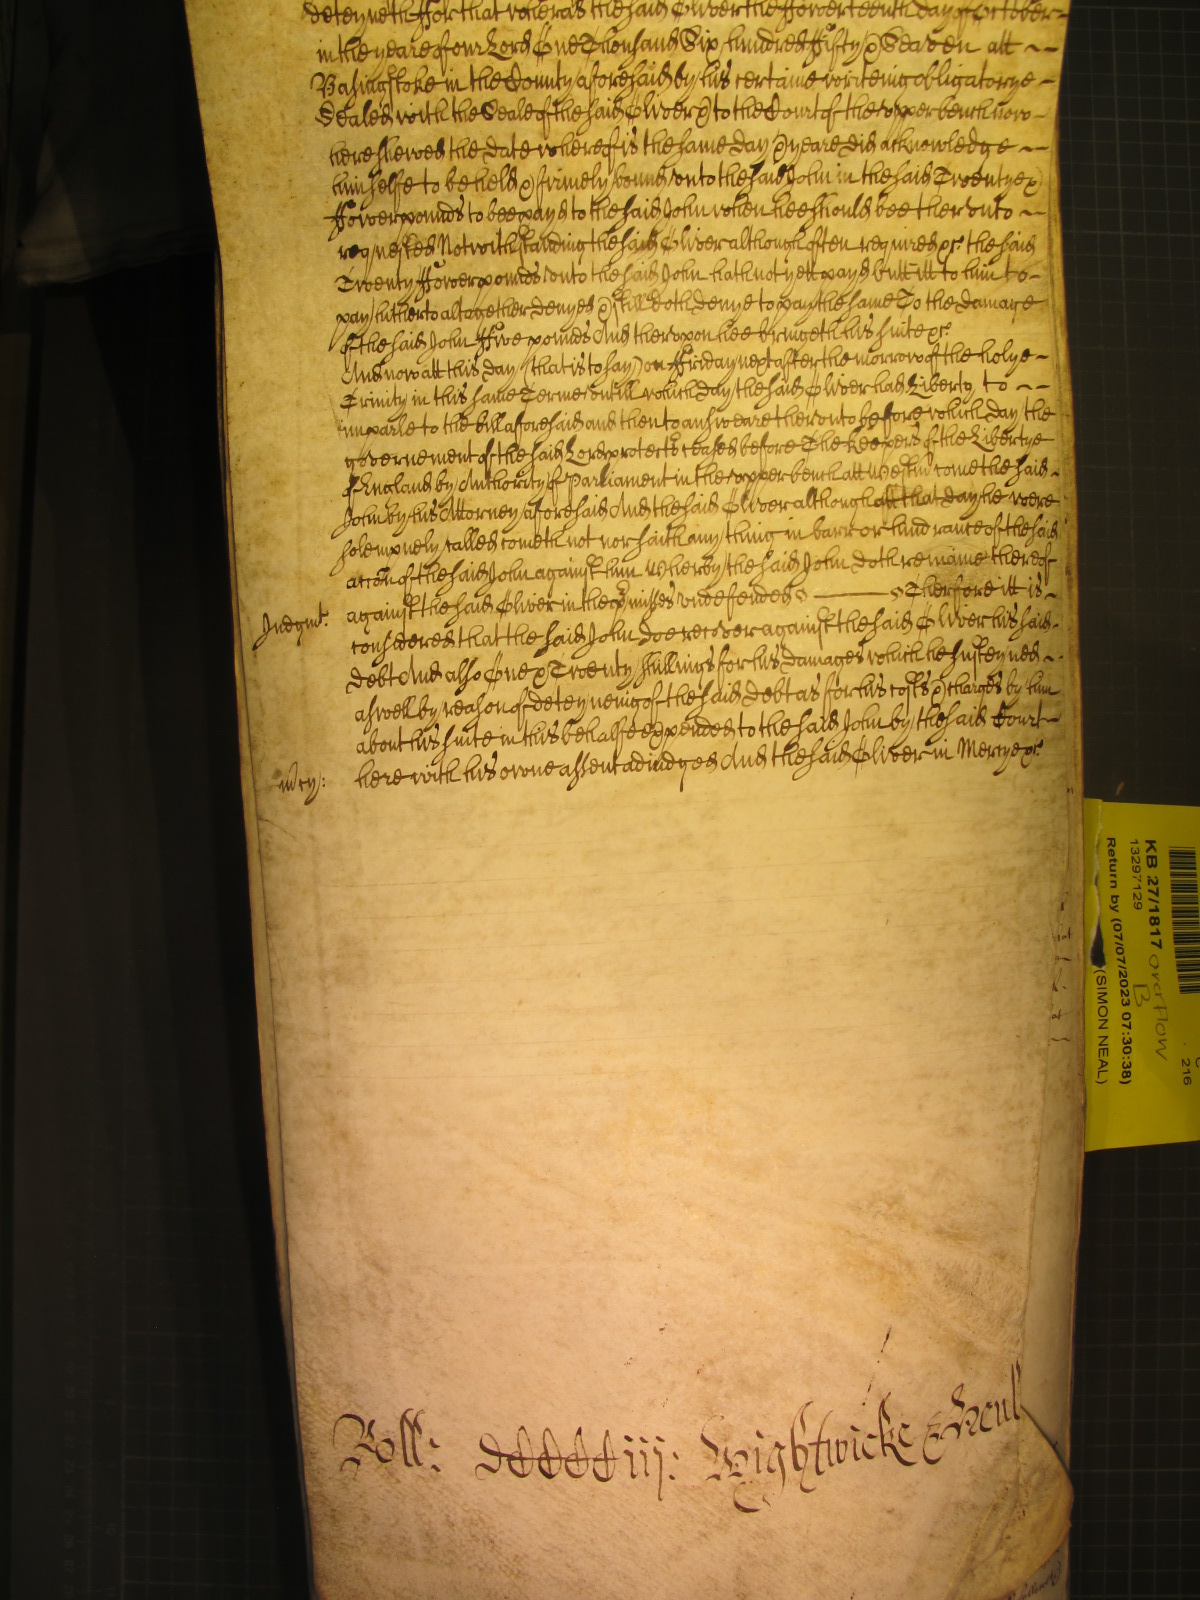 deteyneth For that wheras the said Oliver the Fowerteenth day of October
in the yeare of our Lord One Thousand Six hundred Fifty & Seaven att
Basingstoke in the County aforesaid by his certaine writeing obligatorye
Sealed with the Seale of the said Oliver & to the Court of the upper bench now
here shewed the date wherof is the same day & yeare did acknowledge
himselfe to be held & firmely bound unto the said John in the said Twentye &
Fower pounds to bee payd to the said John when hee should bee therunto
requested Notwithstanding the said Oliver although often required &c the said
Twenty Fower pounds unto the said John hath not yett payd butt itt to him to
pay hitherto altogether denyed & still doth denye to pay the same To the damage
of the said John Five pounds And therupon hee bringeth his suite &c
And now att this day (that is to say) on Friday next after the morrow of the holye
Trinity in this same Terme untill which day the said Oliver had Liberty to
imparle to the bill aforesaid and then to answeare therunto before which day the
governement of the said Lord protector ceased before The Keepers of the Libertye
of England by Authority of Parliament in the upper bench att Westm come the said
John by his Attorney aforesaid And the said Oliver although att that day he were
solempnely called cometh not nor saith any thing in barr or hindrance of the said
accon of the said John against him Wherby the said John doth remaine therof
against the said Oliver in the p'misses undefended Therfore itt is
Judgmt: considered that the said John doe recover against the said Oliver his said
debt And also One & Twenty shillings for his damages which he susteyned
aswell by reason of deteyneing of the said debt as for his costs & charges by him
about his suite in this behalfe expended to the said John by the said Court
m'cy: here with his owne assent adiudged And the said Oliver in Mercye &c
KB 27/1817 overflow
B
13297129
Return by (07/07/2023 07:30:38)
(SIMON NEAL)
216
Roll: dcccciij: Wightwicke &